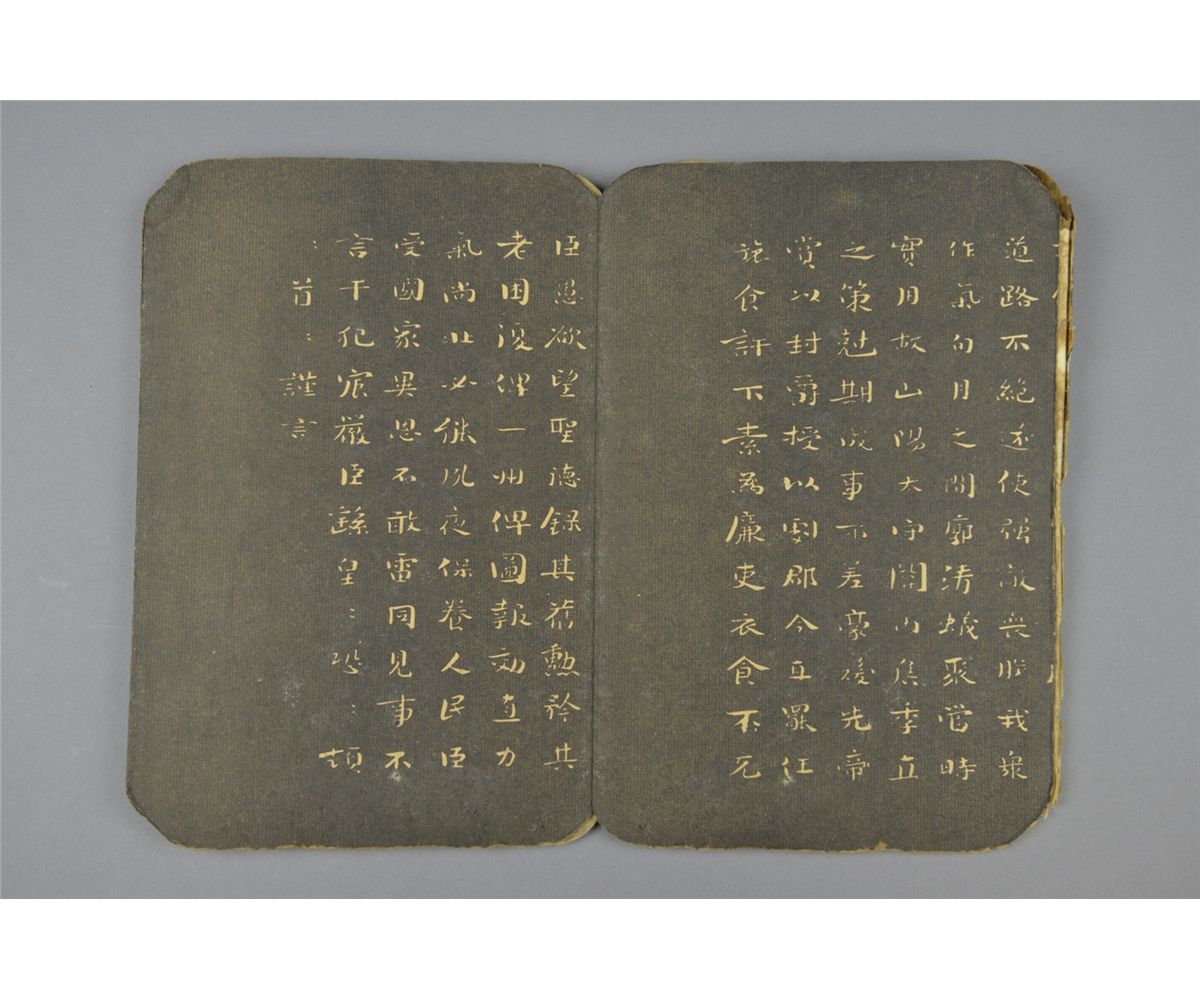 道路不絕遂使强敵喪膽我衆
作氣旬月之間廓清蟻聚當時
實用故山陽太守關內侯季直
之策尅期成事不差豪髮先帝
賞以封爵授以劇郡今直罷任
旅食許下素為廉吏衣食不充
臣愚欲望聖德錄其舊勲矜其
老困復俾一州俾圖報効直力
氣尚壯必能夙夜保養人民臣
受國家異恩不敢雷同見事不
言干犯宸嚴臣繇皇〻恐〻頓
〻首〻謹言